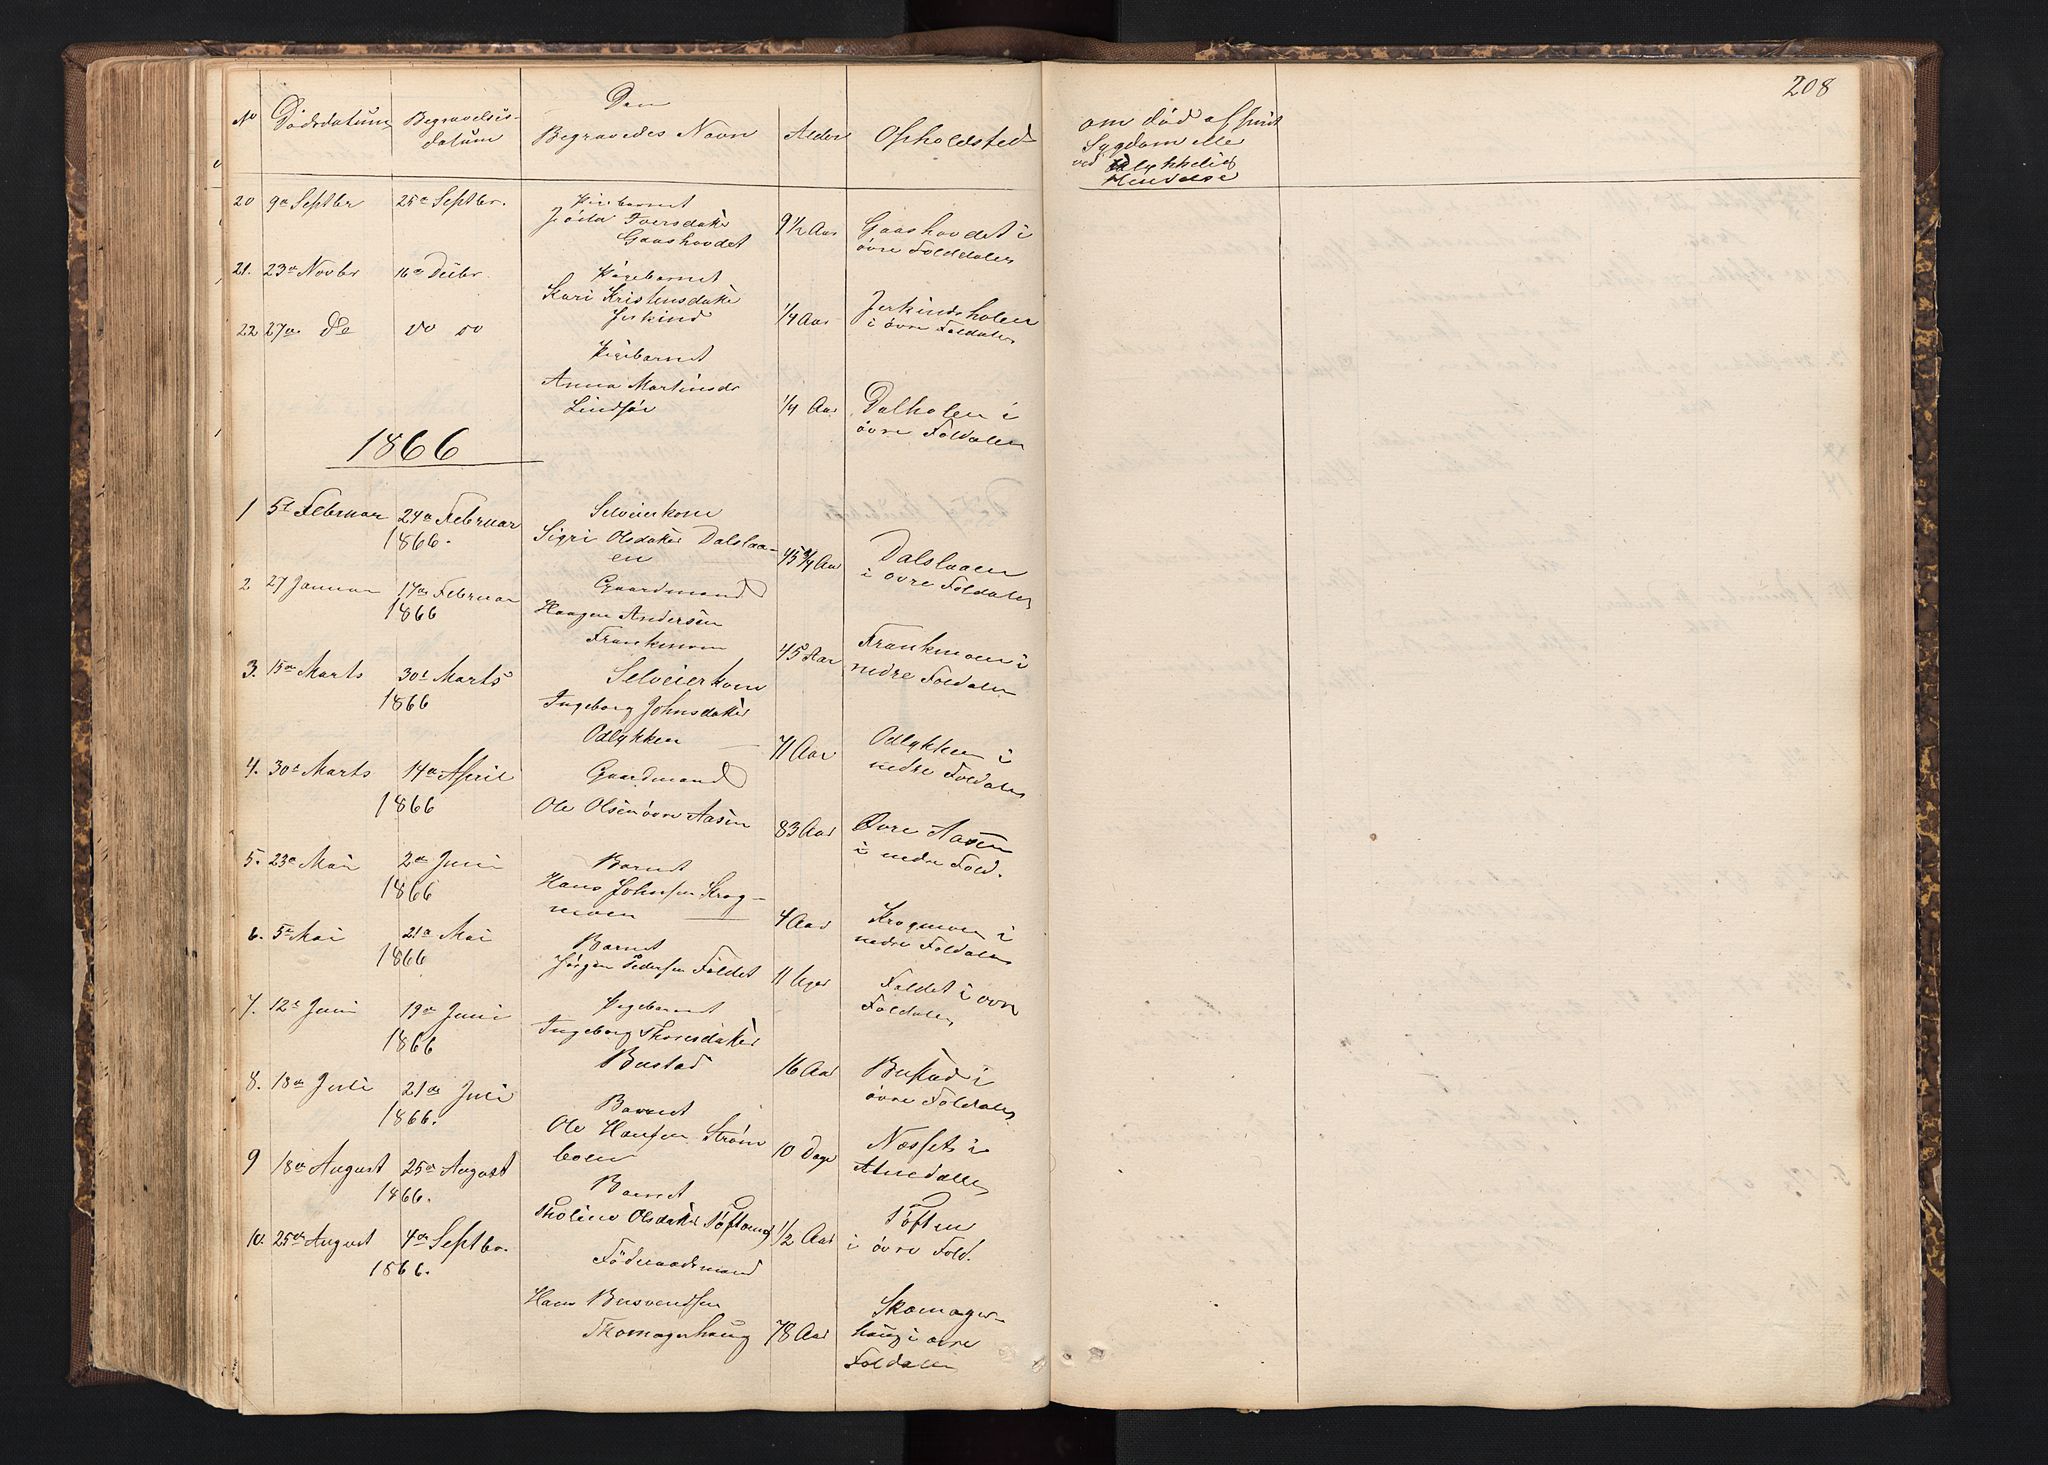 208
No Dödsdatum Begravelses- Den Alder Opholdsted om død af smit
datum Begravedes Navn Sygdom elle
ved ulykkelig
Hendelse
20 9de Septbr 25de Septbr. Pigebarnet
Iversdatter 9 1/2 Aar Gaashovdet i
Gaashovdet øvre Folddalen
21. 23de Novbr 16de Decbr. Pigebarnet
Kari Kristensdatter
Jerkind 1/4 Aar Jerkindsholen
i øvre Foldalen
22 27de do do do
Pigebarnet
Anna Martinsdr
Lindsøe 1/4 Aar Dalholen i
øvre Foldalen
1866
1 5te Februar 24de Februar Selveierkone
1866. Sigri Olsdatter Dalslaa-
en 45 3/4 Aar Dalslaaen
i øvre Foldalen
2 27 Januar 17de Februar Gaardmand
1866 Haagen Andersen
Frankmoen 45 Aar Frankmoen i
nedre Foldalen
3. 15de Marts 30te Marts Selveierkone
1866 Ingeborg Johnsdatter
Odlykken 71 Aar Odlykken i
nedre Foldalen
4. 30te Marts 14de April Gaardmand
1866 Ole Olsen øvre Aasen 83 Aar Øvre Aasen
i nedre Fold.
5. 23de Mai 2den Juni Barnet
1866 Hans Johnsen Krog-
moen 4 Aar Krogmoen i
nedre Foldalen
6. 5te Mai 21de Mai Barnet
1866 Jørgen Pedersen Foldet 11 Uger Foldet i øvre
Foldalen
7. 12te Juni 19de Juni Pigebarnet
1866 Ingeborg Thoresdatter
Bustad 16 Aar Bustad i
øvre Foldalen
8. 18de Juli 21de Juli Barnet
1866. Ole Hansen Strøm
boen 10 Dage Næsset i
Alvedalen
9 18de August 25de August Barnet
1866. Tholine Olsdatter Tøftomg 1/2 Aar Tøften
i øvre Fold.
10. 25de August 4de Septbr. Föderaadsmand
1866. Hans Busvendsen
Skomagerhaug 78 Aar Skomager-
haug i øvre
Foldalen